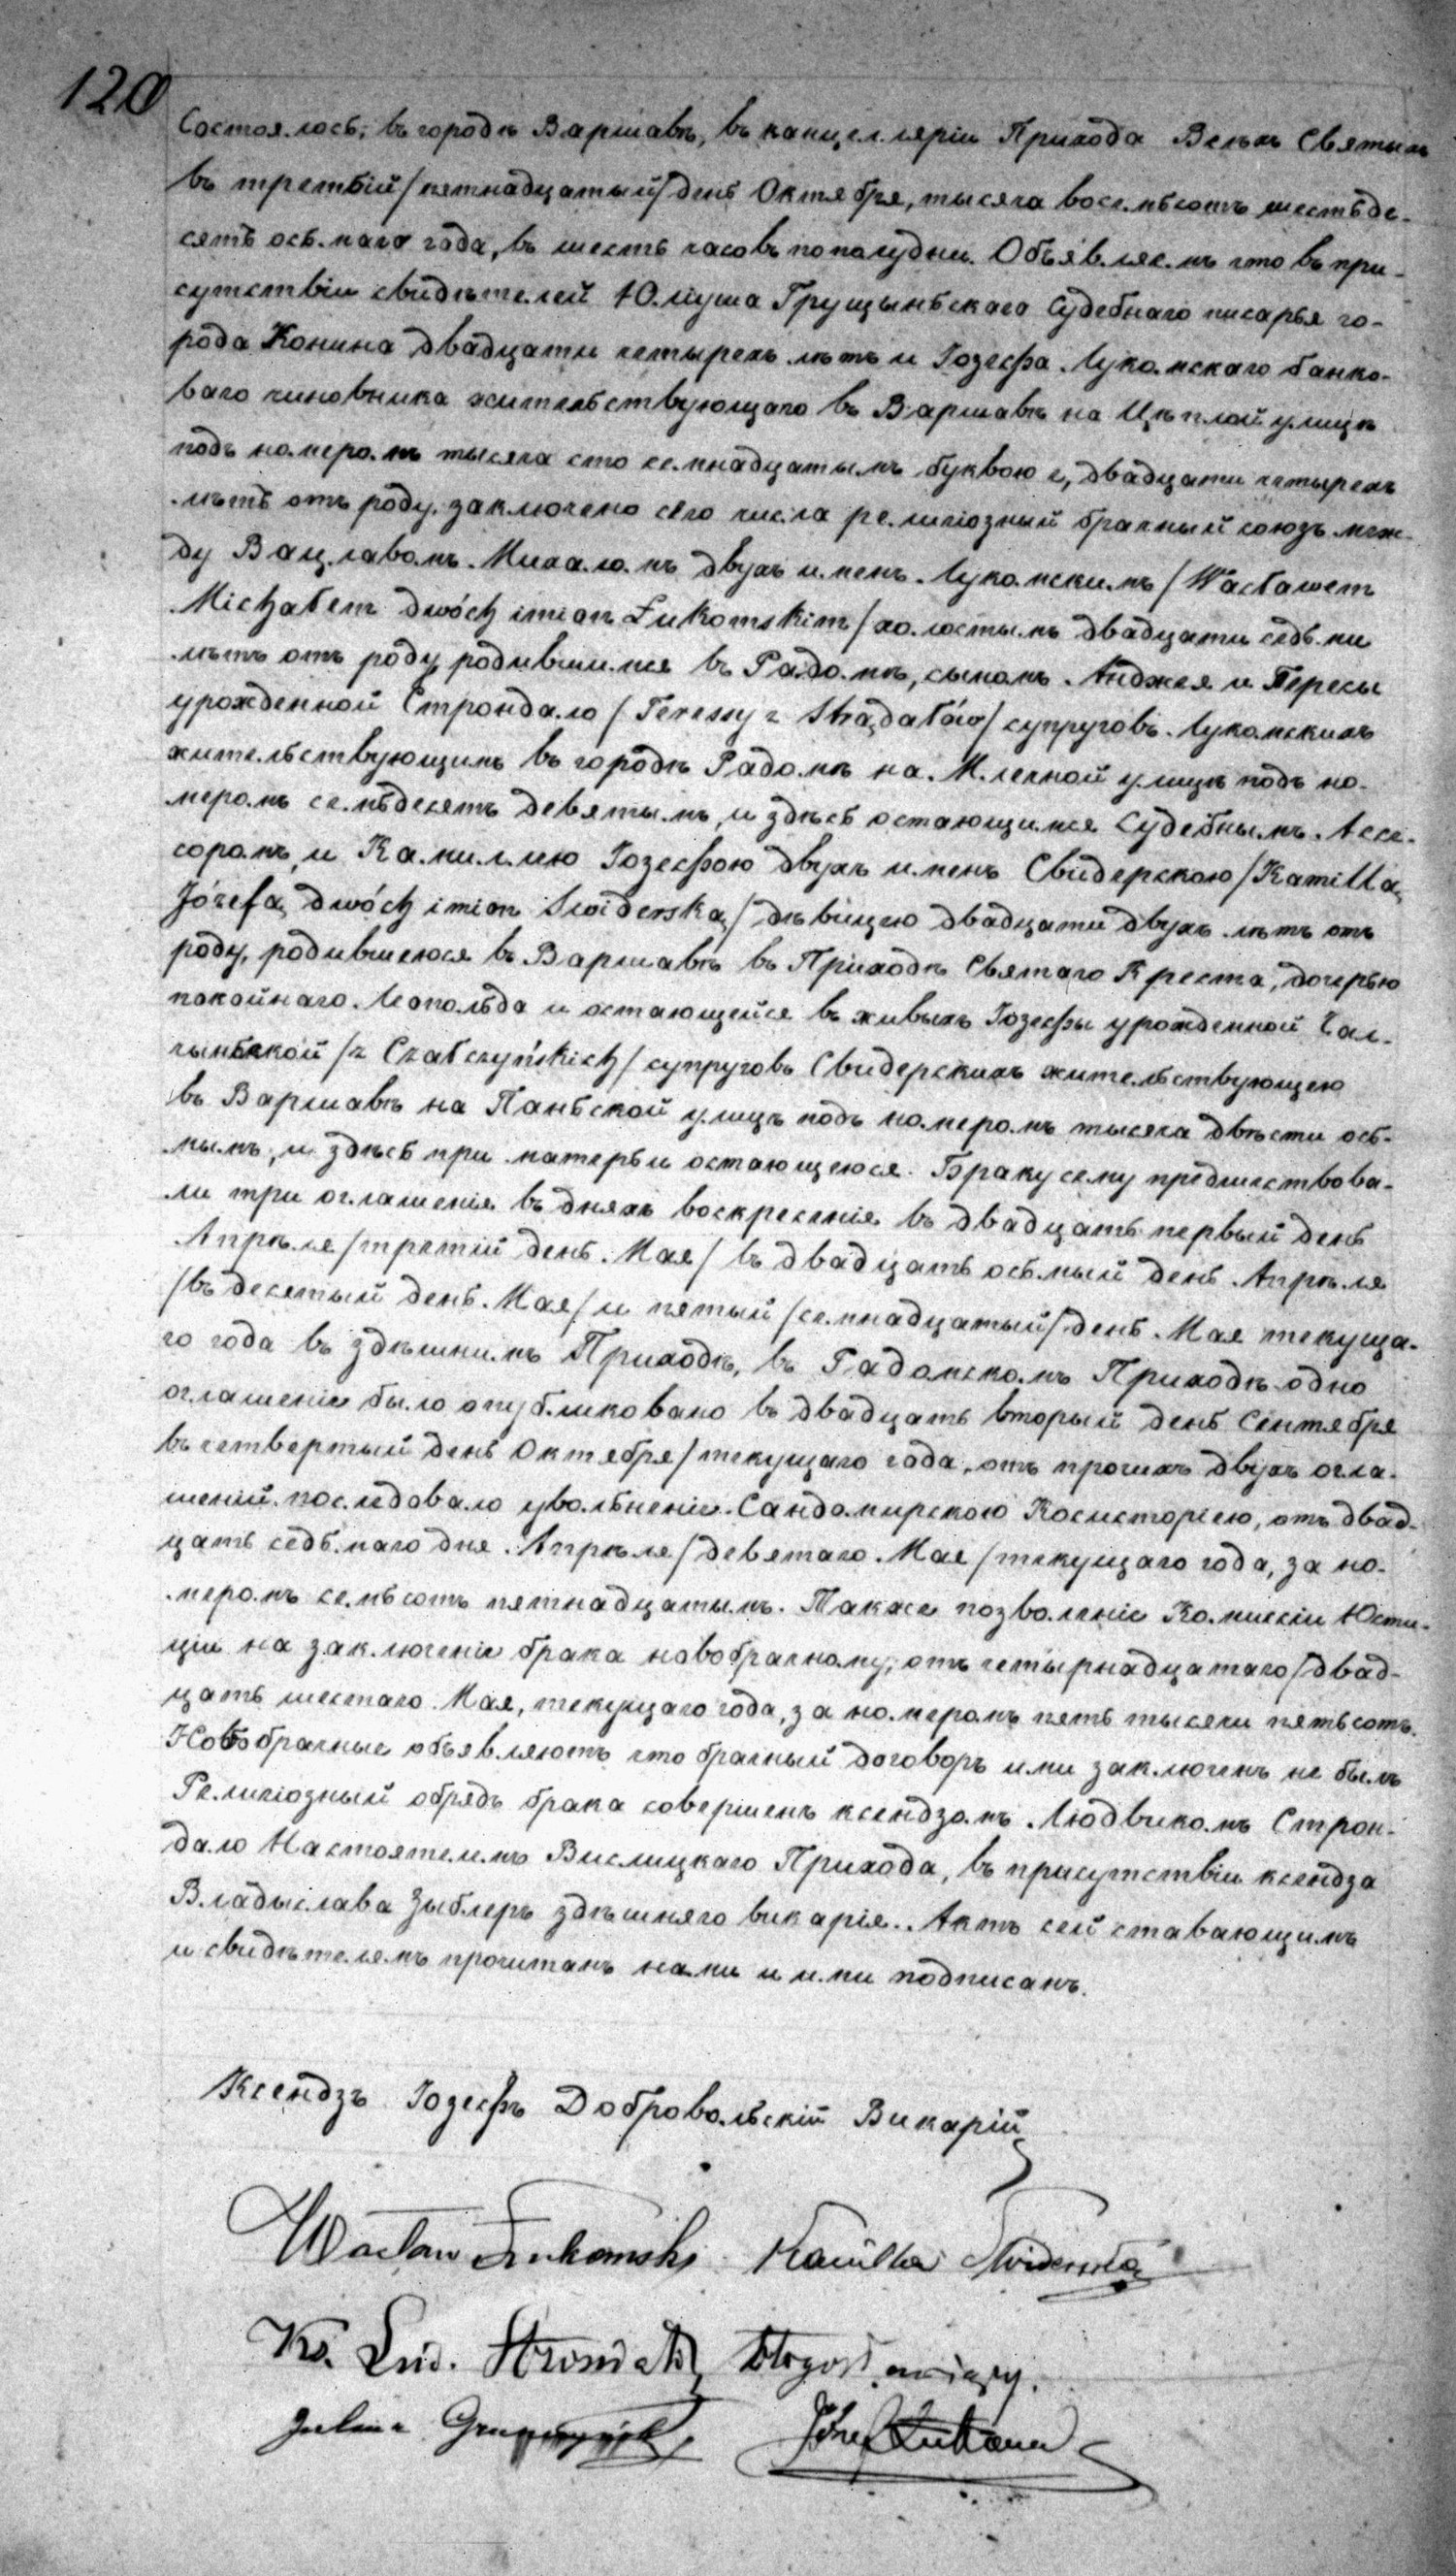 120
Состоялось, въ городѣ Варшавѣ, въ канцеллярiи Прихода Всѣхъ Святыхъ
въ третьiй /пятнадцатый/ день Октября, тысяча восемьсотъ шестьде-
сятъ осьмаго года, въ шесть часовъ пополудни. Объявляемъ что въ при-
сутствiи свидѣтелей Юлiуша Грущыньскаго Судебнаго писарья го-
рода Конина двадцати четырехъ лѣтъ и Iозефа Лукомскаго банко-
ваго чиновника жительствующаго въ Варшавѣ на Цѣплой улицѣ
подъ номеромъ тысяча сто семнадцатымъ буквою е, двадцати четырехъ
лѣтъ отъ роду, заключено сего числа религiозный брачный союзъ меж-
ду Вацлавомъ Михаломъ двухъ именъ Лукомскимъ /Wacławem
Michałem dwóch imion Łukomskim/ холостымъ двадцати седьми
лѣтъ отъ роду родившимся въ Радомѣ, сыномъ Анджея и Тересы
урожденной Строндало /Teressy z Strądałów/ супруговъ Лукомскихъ
жительствующимъ въ городѣ Радомѣ на Млечной улицѣ подъ но-
меромъ семьдесятъ девятымъ, и здѣсь остающимся Судебнымъ Ассе-
соромъ, и Камиллию Iозефою двухъ именъ Свидерскою /Kamillą
Józefą dwóch imion Swiderską/ дѣвицею двадцати двухъ лѣтъ отъ
роду, родившеюся въ Варшавѣ въ Приходѣ Святаго Креста, дочерью
покойнаго Леопольда и остающейся въ живыхъ Iозефы урожденной Чал-
чыньской /z Czałczyńskich/ супруговъ Свидерскихъ жительствующею
въ Варшавѣ на Паньской улицѣ подъ номеромъ тысяча двѣсти ось-
мымъ, и здѣсь при матерьи остающеюся. Браку сему предшествова-
ли три оглашенiя въ дняхъ воскресенiя въ двадцать первый день
Апрѣля /третiй день Мая/ въ двадцать осьмый день Апрѣля
/въ десятый день Мая/ и пятый /семнадцатый/ день Мая текуща-
го года въ здѣшнимъ Приходѣ, въ Радомскомъ Приходѣ одно
оглашенiе было опубликовано въ двадцать вторый день Сентября
въ четвертый день Октября/ текущаго года, отъ прочихъ двухъ огла-
шенiй последовало увольненiе Сандомирскою Косисторiею, отъ двад-
цать седьмаго дня Апрѣля /девятаго Мая/ текущаго года, за но-
меромъ семьсотъ пятнадцатымъ. Также позволенiе Комиссiи Юсти-
цiи на заключенiе брака новобрачному, отъ четырнадцатаго /двад-
цать шестаго Мая, текущаго года, за номеромъ пять тысячи пятьсотъ.
Новобрачные объявляютъ что брачный договоръ ими заключенъ не былъ
Религiозный обрядъ брака совершенъ ксендзомъ Людвикомъ Строн-
дало Настоятелимъ Вислицкаго Прихода, въ присутствiи ксендза
Владыслава Зыблеръ здѣшняго викарiя. Актъ сей ставающимъ
и свидѣтелямъ прочитанъ нами и ими подписанъ.
Ксендзъ Iозефъ Добровольскiй Викарiй
Wacław Łukomski Kamilla Swiderska
Ks. Lud. Strondało
Juliusz Gruszczyński Józef Łukomski